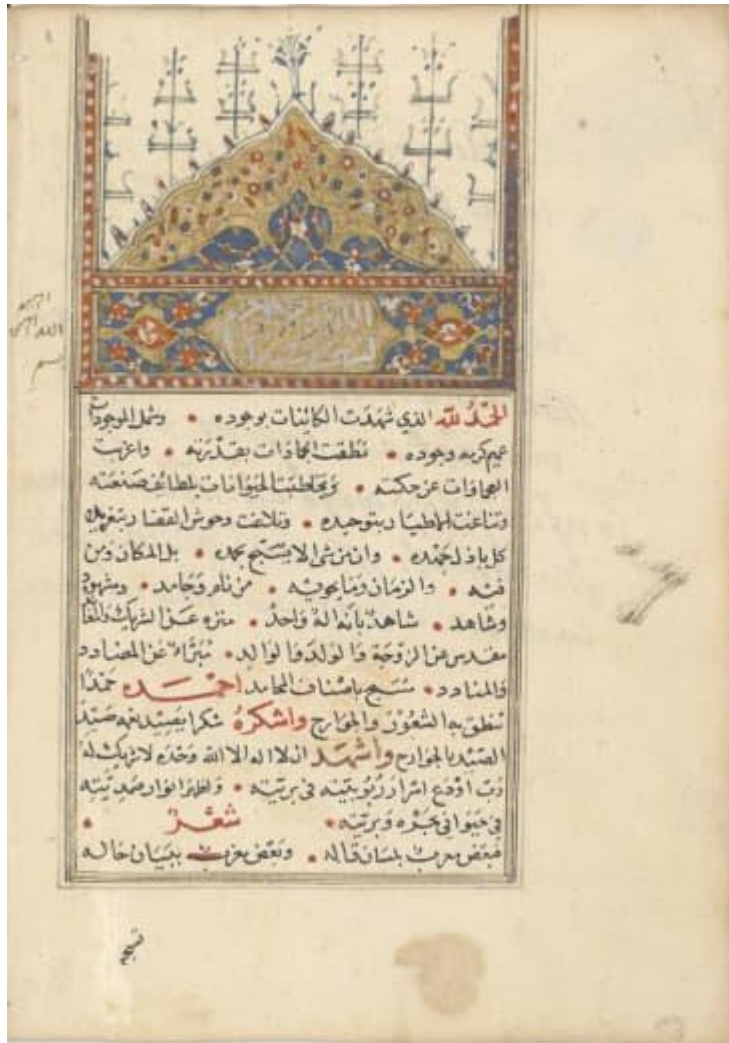 الحمد لله الذي شهدت الكائنات بوجوده • وشمل الموجودات
عميم كرمه وجوده • نطقت الجمادات بقدرته • واعربت
العجماوات عن حكمته • وتخاطبت الحيوانات بلطائف صنعته
وتناغت الاطيار بتوحيده • وتلاغت وحوش القفار بتغريده
كل باذل جهده • وان من شي الا يسبح بحمده • بل المكان ومن
فيه • والزمان وما يحويه • من نام وجامد • ومشهود
وشاهد • شاهد بانه اله واحد • منزه عن الشريك والمعاند
مقدس عن الزوجة والولد والوالد • مبراء عن المضادد
والمنادد • مسبح باصناف المحامد احمده حمدا
تنطق به الشعور والجوارح واشكره شكرا يصيد نعمه صيد
الصيد بالجوارح واشهد ان لا اله الا الله وحده لا شريك له
رب اودع اسرار ربوبيته في بريته • واظهر انوار صمديته
في حيواني بحره وبريته • شعر •
فبعض يعرب بلسان قاله • وبعض يعرب ببيان حاله